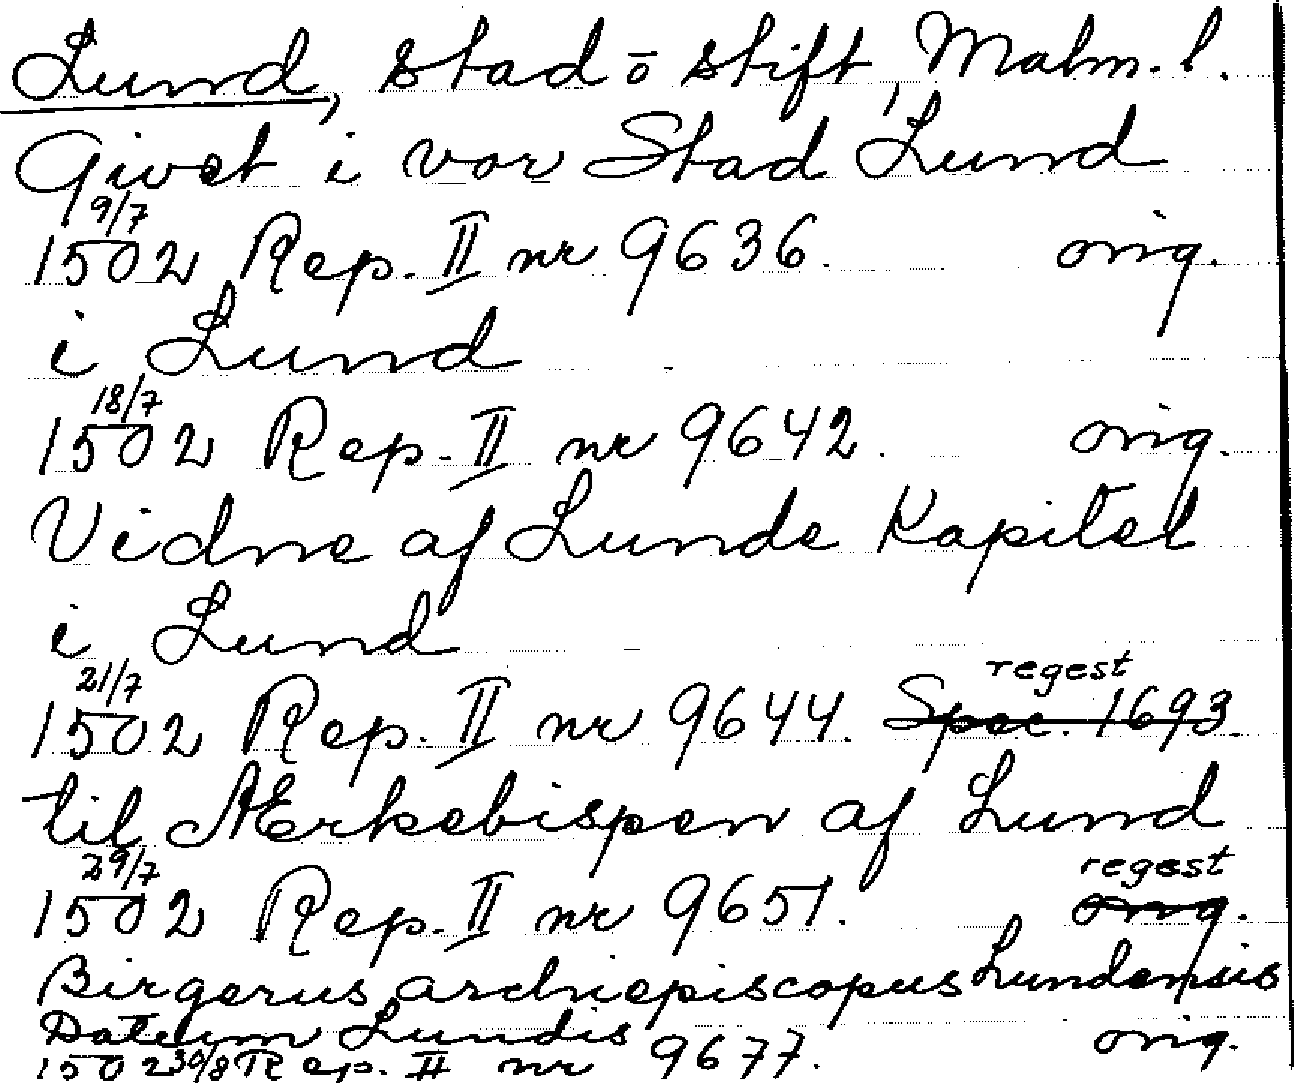 Lund, stad ō stift, Malm. l.
Givet i vor Stad Lund
9/7
1502 Rep. II nr 9636. orig.
i Lund
18/7
1502 Rep. II nr 9642. orig.
Vidne af Lunde Kapitel
i Lund
21/7 regest
1502 Rep. II nr 9644. Spec. 1693.
til Ærkebispen af Lund
29/7 regest
1502 Rep. II nr 9651. orig.
Birgerus archiepiscopus Lundensis
Datum Lundis orig.
1502 30/8 Rep. II nr 9677.